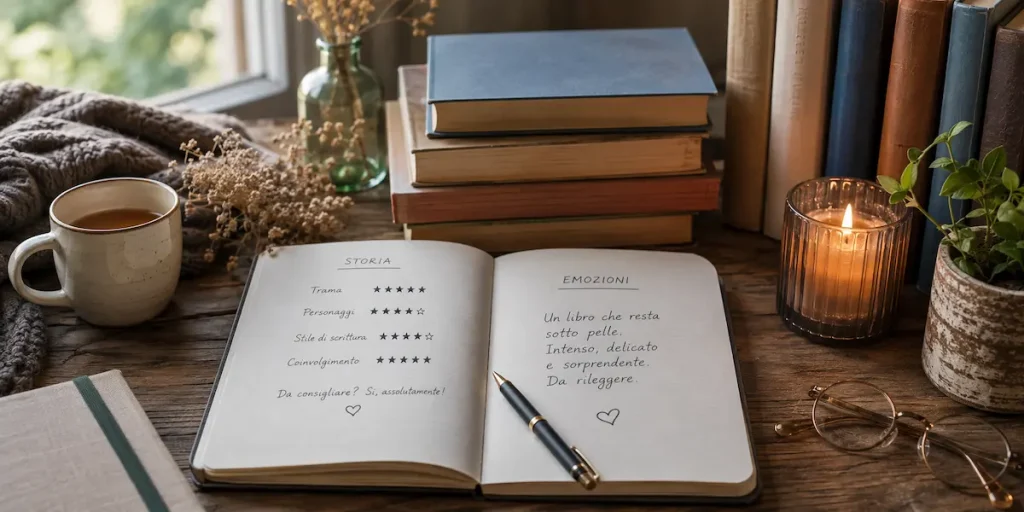 STORIA
Trama ★★★★★
Personaggi ★★★★☆
Stile di scrittura ★★★★☆
Coinvolgimento ★★★★★
Da consigliare? Sì, assolutamente!
♡
EMOZIONI
Un libro che resta
sotto pelle.
Intenso, delicato
e sorprendente.
Da rileggere.
♡